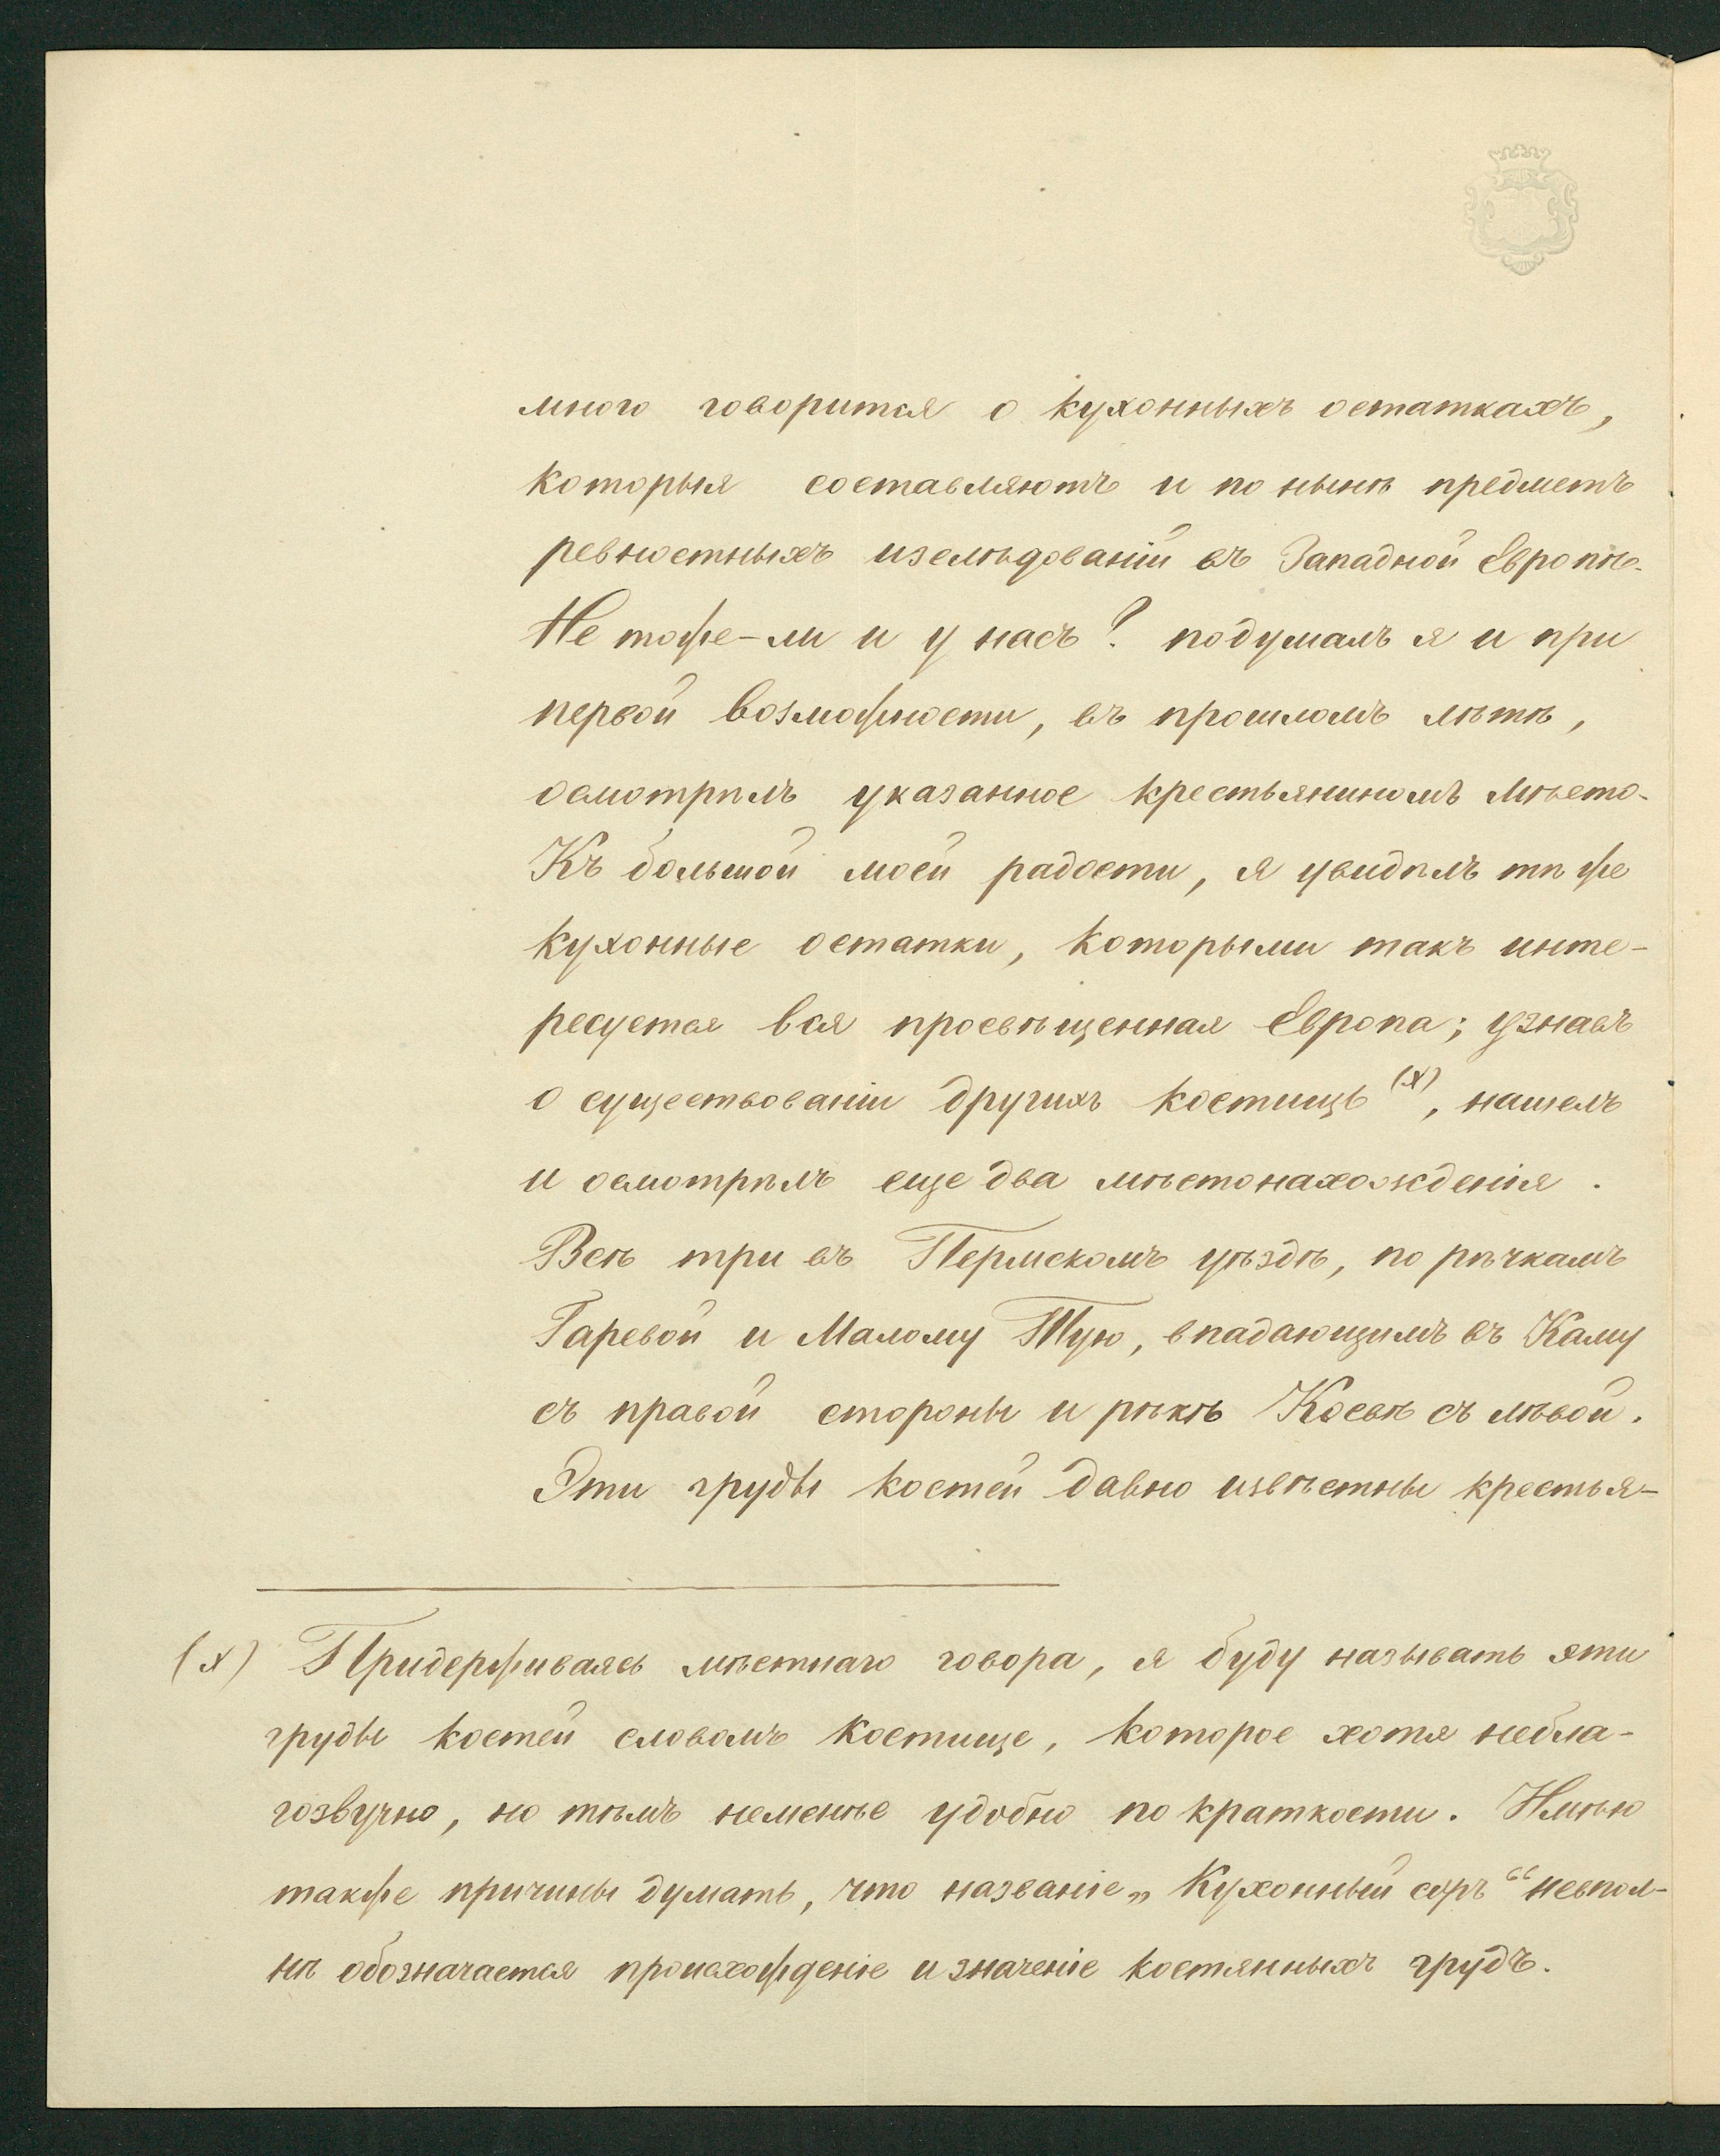 много говорится о кухонныхъ остаткахъ,
которыя составляютъ и по нынѣ предметъ
ревностныхъ изслѣдованій въ Западной Европѣ.
Не тоже-ли и у насъ? подумалъ я и при
первой возможности, въ прошломъ лѣтѣ,
осмотрѣлъ указанное крестьяниномъ мѣсто.
Къ большой моей радости, я увидѣлъ тѣ же
кухонные остатки, которыми такъ инте-
ресуется вся просвѣщенная Европа; узнавъ
о существованіи другихъ костищъ (х), нашелъ
и осмотрѣлъ еще два мѣстонахожденія.
Всѣ три въ Пермскомъ уѣздѣ, по рѣчкамъ
Гаревой и Малому Тую, впадающимъ въ Каму
съ правой стороны и рѣкѣ Косвѣ съ лѣвой.
Эти груды костей давно извѣстны крестья-
(х) Придерживаясь мѣстнаго говора, я буду называть эти
груды костей словомъ костище, которое хотя небла-
гозвучно, но тѣмъ неменѣе удобно по краткости. Имѣю
также причины думать, что названіе „Кухонный соръ“ невпол-
нѣ обозначается происхожденіе и значеніе костянныхъ грудъ.